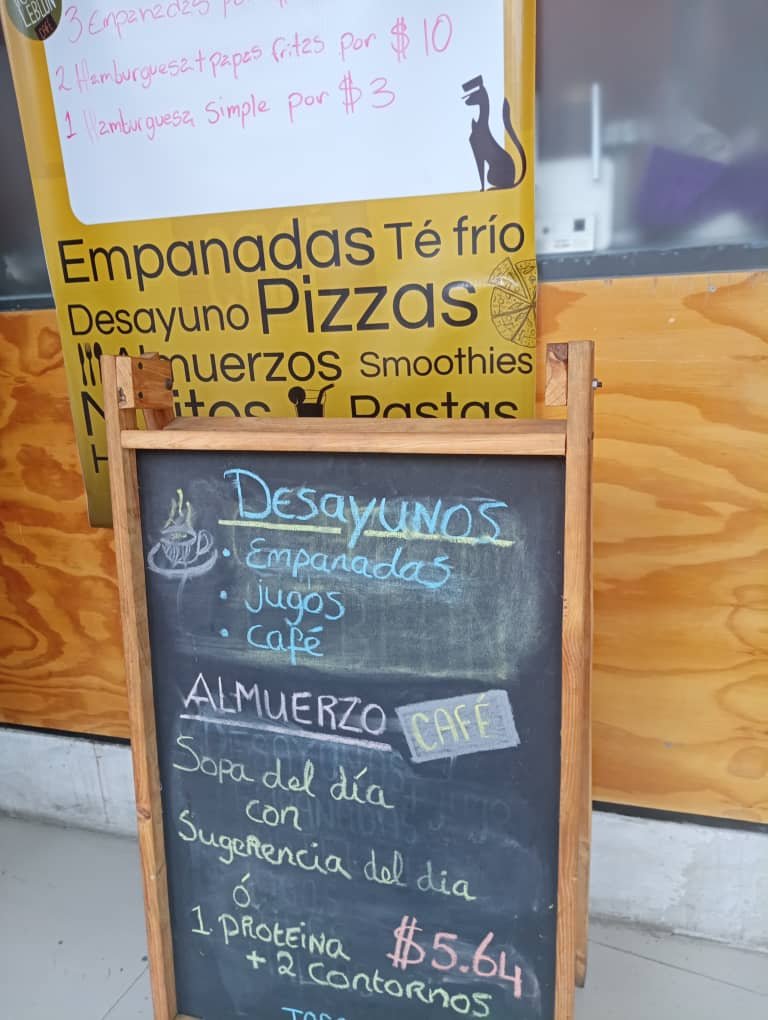 LEBLON
CAFÉ
3 Empanadas por $
2 Hamburguesa + papas fritas por $10
1 Hamburguesa simple por $3
Empanadas Té frío
Desayuno Pizzas
Almuerzos Smoothies
Pastas
DESAYUNOS
• Empanadas
• jugos
• café
ALMUERZO CAFÉ
Sopa del día
con
Sugerencia del dia
ó
1 PROTEINA $5.64
+ 2 CONTORNOS